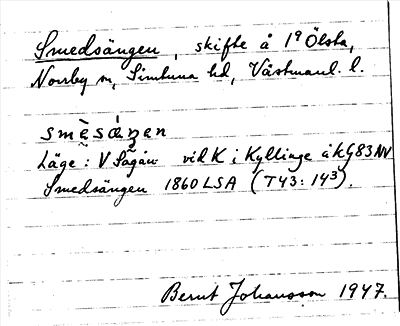 Smedsängen, skifte å 1⁹ Ölsta,
Norrby sn, Simtuna hd, Västmanl. l.
smèsáŋen
Läge: V Sagån vid K i Kyllinge å kG83NV
Smedsängen 1860 LSA (T43: 14³).
Bernt Johansson 1947.